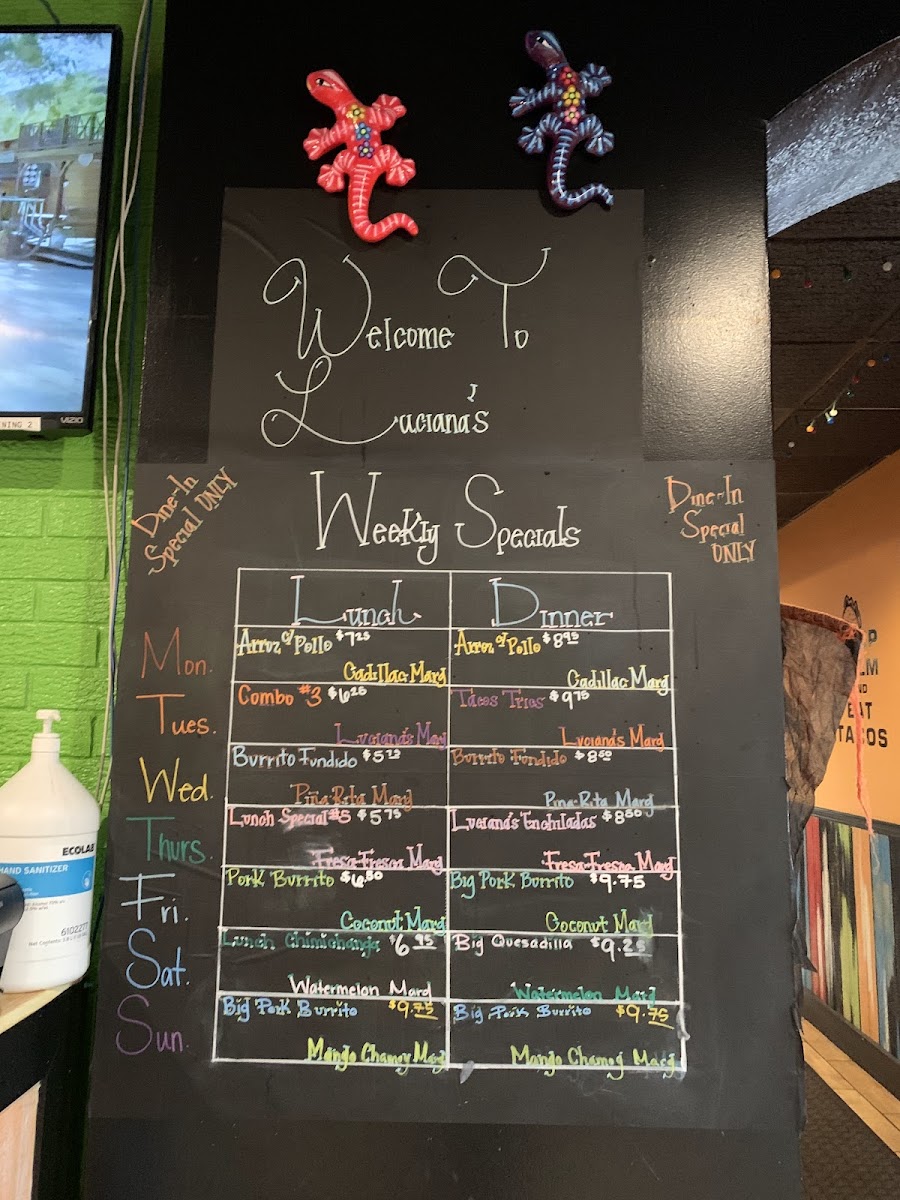 Welcome To
Luciana's
Dine-In
Special ONLY
Weekly Specials
Dine-In
Special
ONLY
Lunch Dinner
Mon. Arroz c/ Pollo $7.25 Arroz c/ Pollo $8.95
Cadillac Marg Cadillac Marg
Tues. Combo #3 $6.25 Tacos Trios $9.75
Luciana's Marg Luciana's Marg
Wed. Burrito Fundido $5.75 Burrito Fundido $8.50
Piña-Rita Marg Pina-Rita Marg
Thurs. Lunch Special #5 $5.75 Luciana's Enchiladas $8.50
Fresa-Fresca Marg Fresa-Fresca Marg
Fri. Pork Burrito $6.50 Big Pork Burrito $9.75
Coconut Marg Coconut Marg
Sat. Lunch Chimichanga $6.95 Big Quesadilla $9.25
Watermelon Marg Watermelon Marg
Sun. Big Pork Burrito $9.75 Big Pork Burrito $9.75
Mango Chamoy Marg Mango Chamoy Marg
NING 2
VIZIO
ECOLAB
HAND SANITIZER
6102277
P
LM
AND
EAT
TACOS